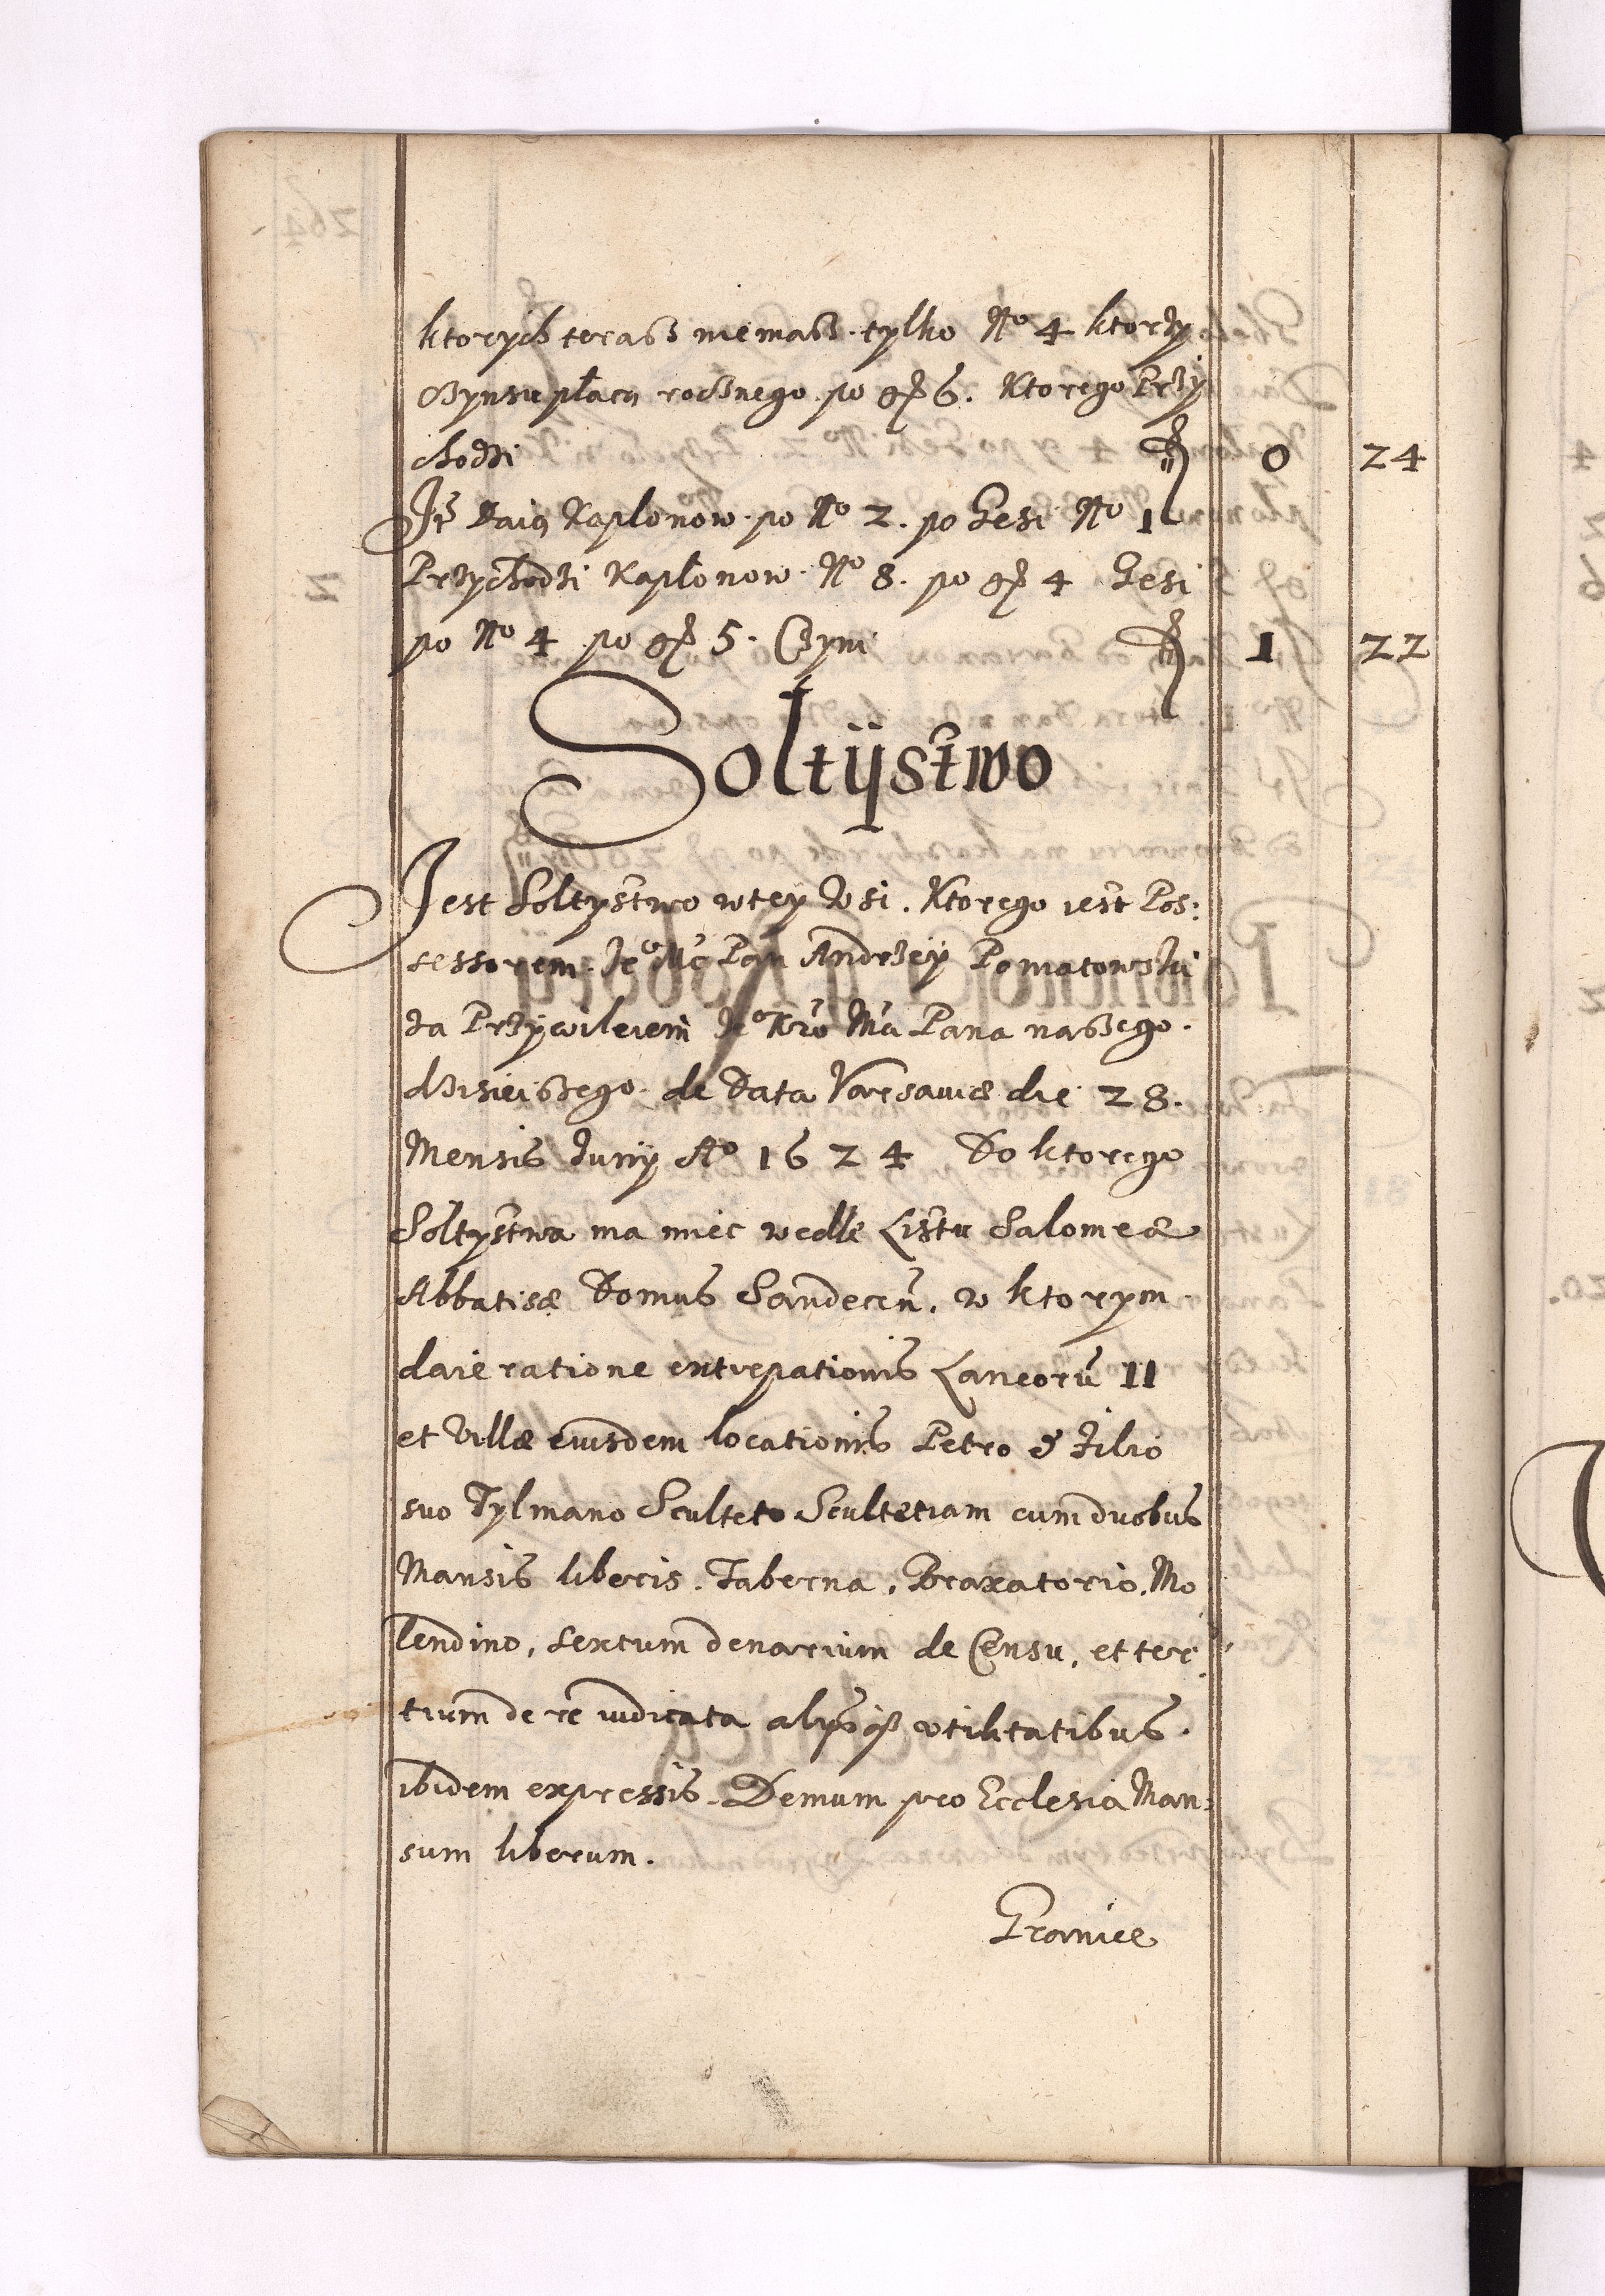 ktorych terasz niemasz tylko No 4 ktorzy
Czynsu płacą rocznego po gr 6. Ktorego Przy
chodzi fl 0 24
Ite Daią Kapłonow po No 2. po Gesi No 1
Przychodzi Kapłonow No 8. po gr 4 Gesi
po No 4 po gr 5. Czyni fl 1 22
Soltÿstwo
Jest Soltystwo wtey Wsi. Ktorego iest Pos:
sessorem Jeo Mć Pan Andrzey Poniatowski
za Przywileiem Jeo Kro Mci Pana naszego.
dzisieiszego de Data Varsaviæ die 28.
Mensis Junÿ Ao 1624 Do ktorego
Soltystwa ma miec wedle Listu Salomeæ
Abbatisæ Domus Sandecen. w ktorym
daie ratione extirpationis Laneorū 11
et Villæ eiusdem locationis Petro & Filio
suo Tylmano Sculteto Scultetiam cum duobus
Mansis liberis. Taberna, Braxatorio, Mo
lendino, sextum denarium de Censu, et ter:
tium de re iudicata alysq3 vtilitatibus.
ibidem expressis. Demum pro Ecclesia Man:
sum liberum.
Granice